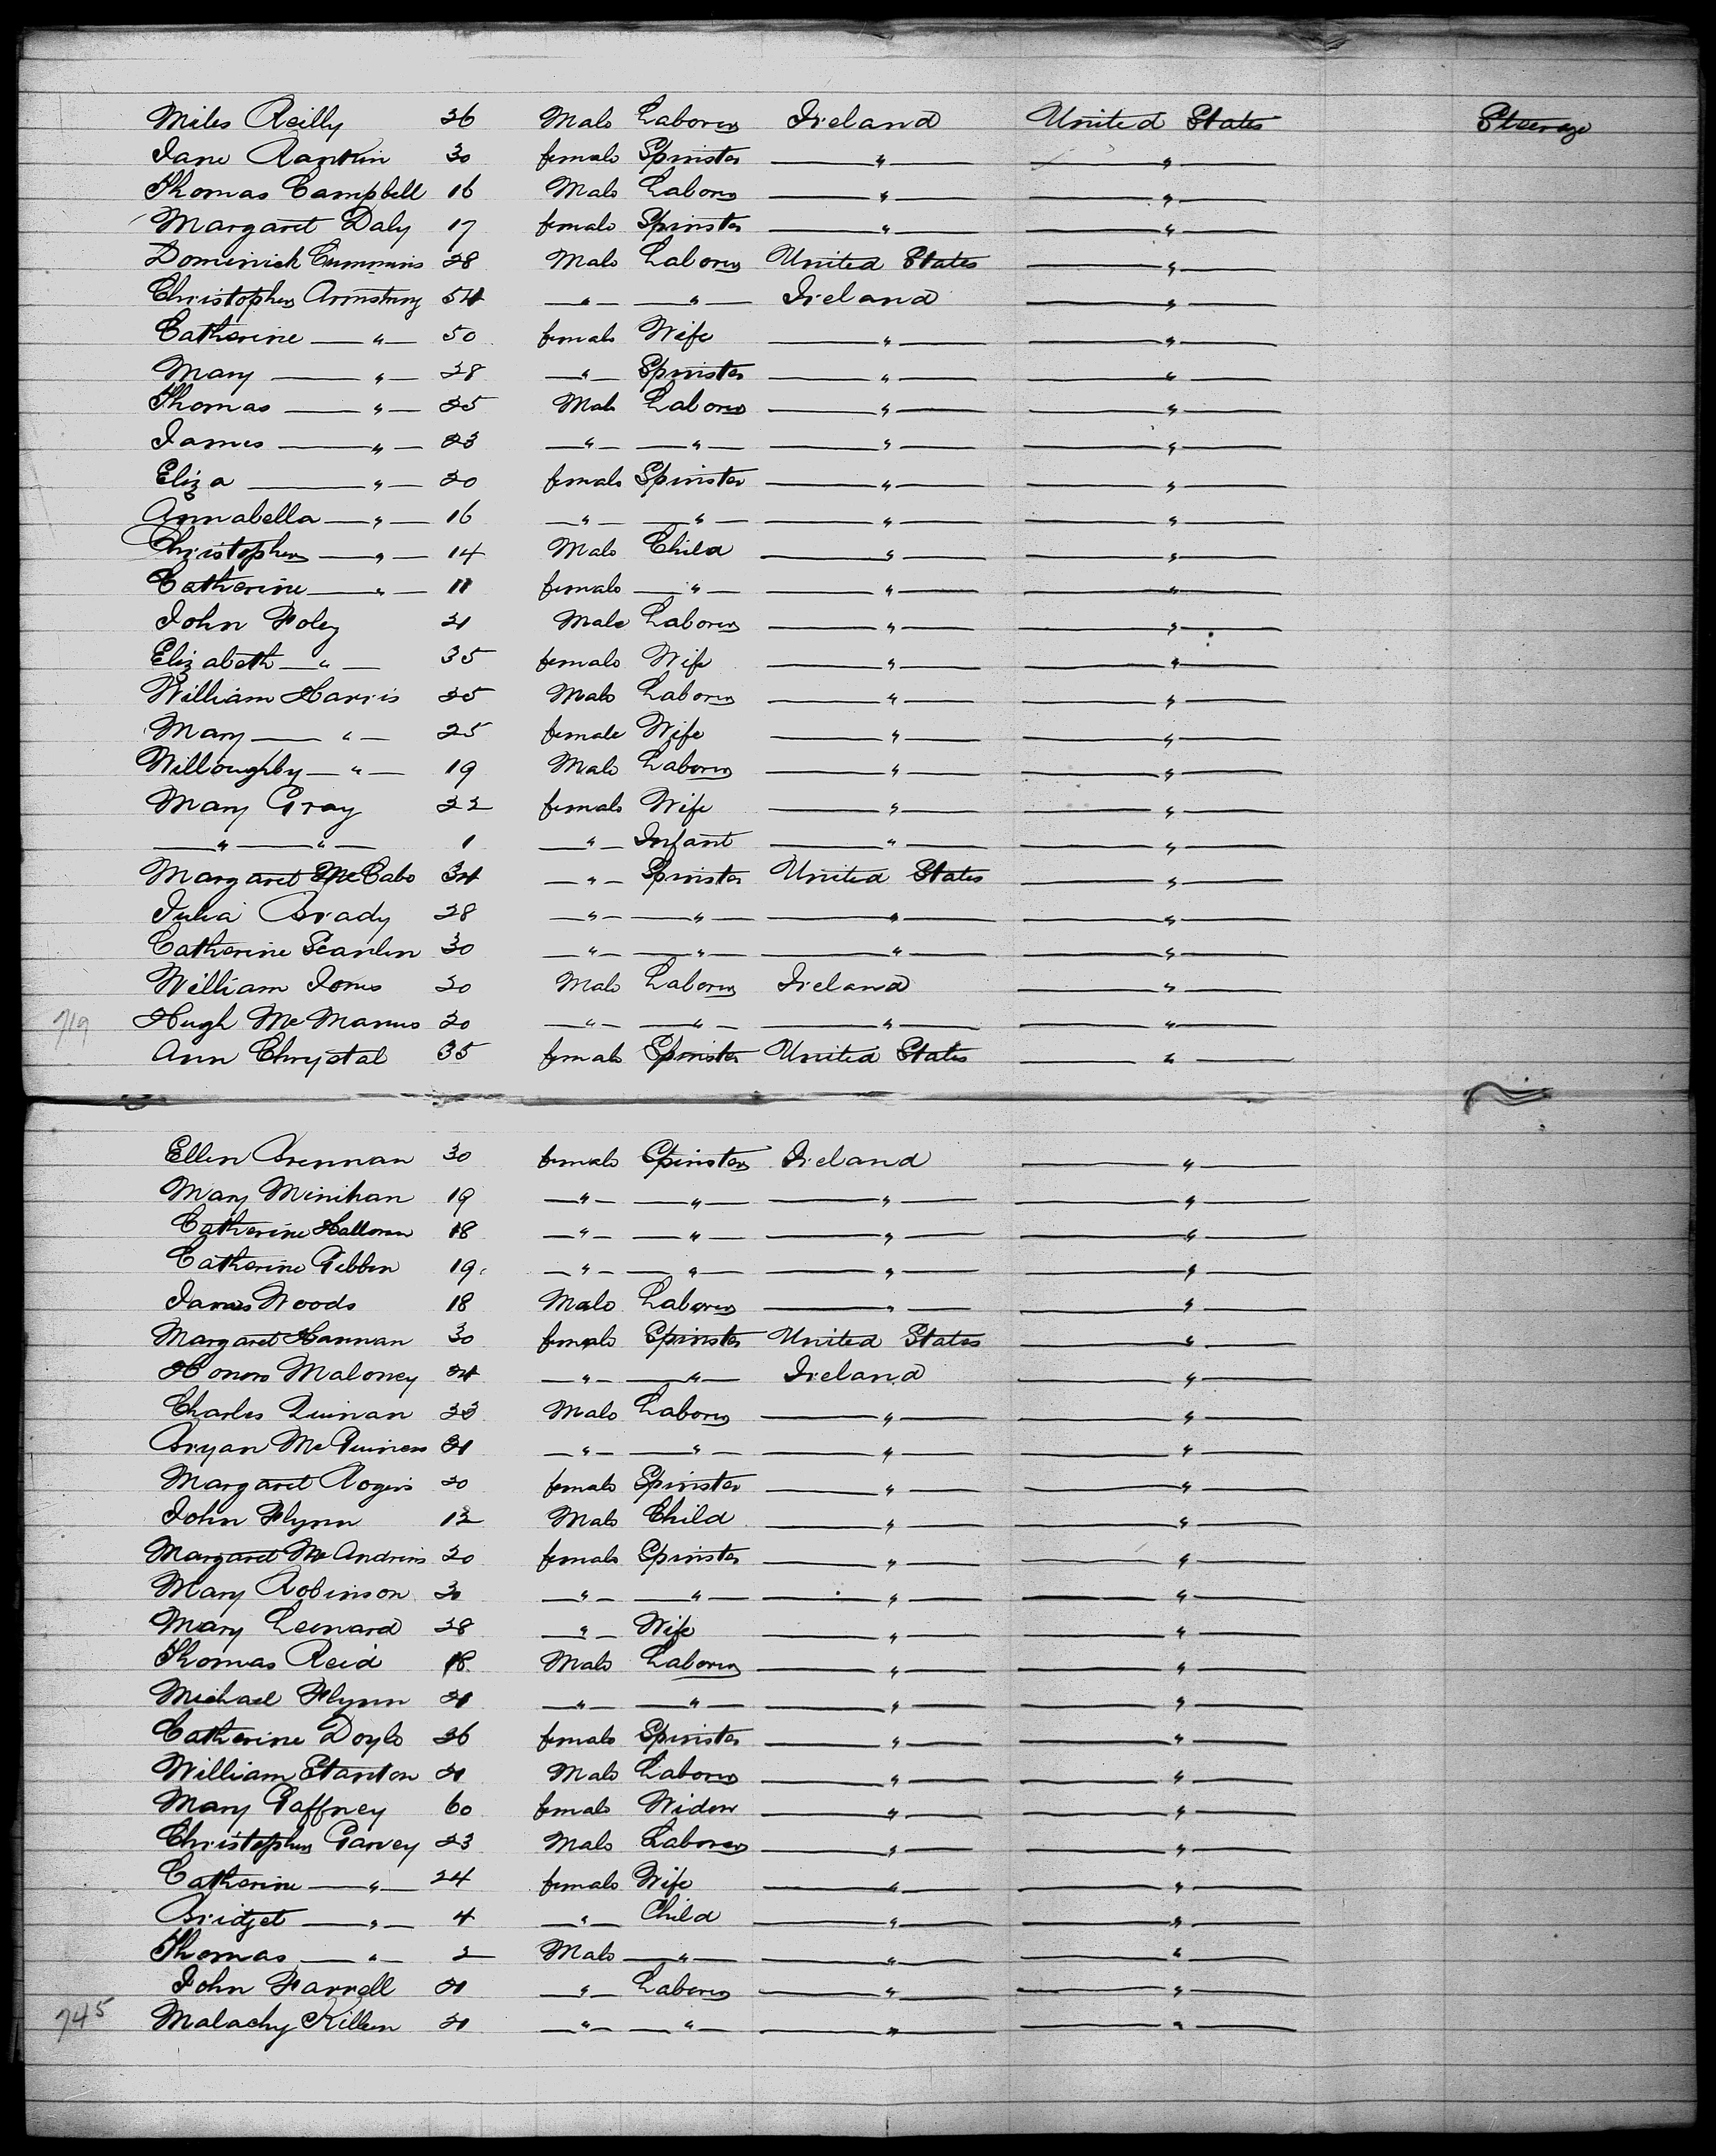 Miles Reilly 26 Male Laborer Ireland United States Steerage
Jane Rankin 30 female Spinster — " — — " —
Thomas Campbell 16 Male Laborer — " — — " —
Margaret Daly 17 female Spinster — " — — " —
Dominick Cummins 28 Male Laborer United States — " —
Christopher Armstrong 54 — " — — " — Ireland — " —
Catherine — " — 50 female Wife — " — — " —
Mary — " — 28 — " — Spinster — " — — " —
Thomas — " — 25 Male Laborer — " — — " —
James — " — 23 — " — — " — — " — — " —
Eliza — " — 20 female Spinster — " — — " —
Annabella — " — 16 — " — — " — — " — — " —
Christopher — " — 14 Male Child — " — — " —
Catherine — " — 11 female — " — — " — — " —
John Foley 21 Male Laborer — " — — " —
Elizabeth — " — 35 female Wife — " — — " —
William Harris 25 Male Laborer — " — — " —
Mary — " — 25 female Wife — " — — " —
Willoughby — " — 19 Male Laborer — " — — " —
Mary Gray 22 female Wife — " — — " —
— " — — " — 1 — " — Infant — " — — " —
Margaret McCabe 34 — " — Spinster United States — " —
Julia Brady 28 — " — — " — — " — — " —
Catherine Scanlon 30 — " — — " — — " — — " —
William Jones 20 Male Laborer Ireland — " —
719 Hugh McManus 20 — " — — " — — " — — " —
Ann Chrystal 35 female Spinster United States — " —
Ellen Brennan 30 female Spinster Ireland — " —
Mary Minihan 19 — " — — " — — " — — " —
Catherine Halloran 18 — " — — " — — " — — " —
Catherine Gibbon 19 — " — — " — — " — — " —
James Woods 18 Male Laborer — " — — " —
Margaret Hannan 30 female Spinster United States — " —
Honora Maloney 24 — " — — " — Ireland — " —
Charles Quinan 23 Male Laborer — " — — " —
Bryan McGuiness 21 — " — — " — — " — — " —
Margaret Rogers 20 female Spinster — " — — " —
John Flynn 12 Male Child — " — — " —
Margaret McAndrews 20 female Spinster — " — — " —
Mary Robinson — " — — " — — " — — " —
Mary Leonard 28 — " — Wife — " — — " —
Thomas Reid 18 Male Laborer — " — — " —
Michael Flynn 21 — " — — " — — " — — " —
Catherine Doyle 26 female Spinster — " — — " —
William Stanton 21 Male Laborer — " — — " —
Mary Gaffney 60 female Widow — " — — " —
Christopher Garvey 23 Male Laborer — " — — " —
Catherine — " — 24 female Wife — " — — " —
Bridget — " — 4 — " — Child — " — — " —
Thomas — " — 2 Male — " — — " — — " —
John Farrell 21 — " — Laborer — " — — " —
745 Malachy Killen 21 — " — — " — — " — — " —